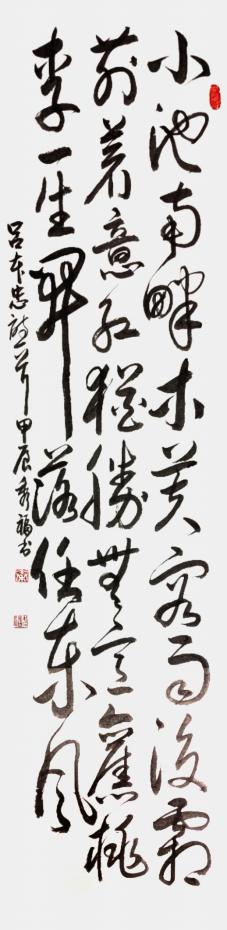 小池南畔木芙蓉雨後霜
前着意紅猶勝無言舊桃
李一生開落任東風
吕本忠詩一首甲辰秀福书